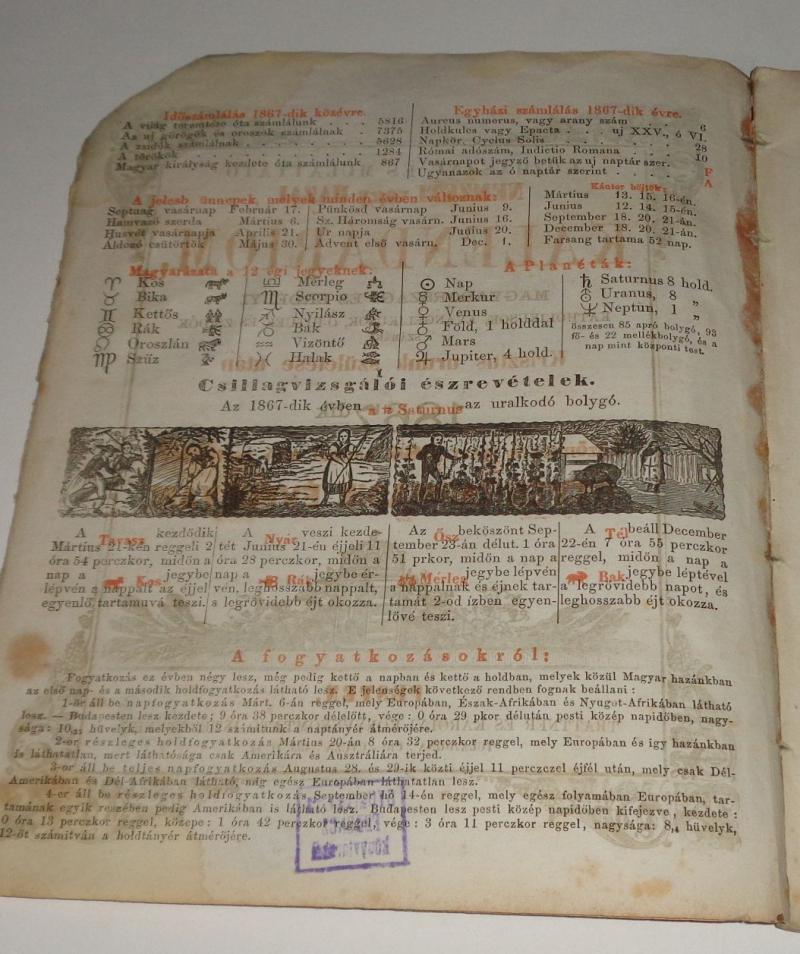 Időszámlálás 1867-dik közévre.
A világ teremtése óta számlálunk . . . 5816
Az uj görögök és oroszok számlálnak . 7375
A zsidók számlálnak . . . . 5628
A törökök . . . . 1284
Magyar királyság kezdete óta számlálunk 867
Egyházi számlálás 1867-dik évre.
Aureus numerus, vagy arany szám 6
Holdkulcs vagy Epacta . . . uj XXV., ó VI.
Napkör, Cyclus Solis . . . . 28
Római adószám, Indictio Romana . . . 10
Vasárnapot jegyző betük az uj naptár szer. F
Ugyanazok az ó naptár szerint . . . . A
A jelesb ünnepek, melyek minden évben változnak:
Septuag vasárnap Február 17.
Hamvazó szerda Mártius 6.
Husvét vasárnapja Aprilis 21.
Áldozó csütörtök Május 30.
Pünkösd vasárnap Junius 9.
Sz. Háromság vasárn. Junius 16.
Úr napja Junius 20.
Advent első vasárn. Dec. 1.
Kántor böjtök:
Mártius 13. 15. 16-én.
Junius 12. 14. 15-én.
September 18. 20. 21-án.
December 18. 20. 21-án.
Farsang tartama 52 nap.
Magyarázata a 12 égi jegyeknek:
♈ Kos
♉ Bika
♊ Kettős
♋ Rák
♌ Oroszlán
♍ Szüz
♎ Mérleg
♏ Scorpio
♐ Nyilász
♑ Bak
♒ Vizöntő
♓ Halak
A Planéták:
☉ Nap
☿ Merkur
♀ Venus
♁ Föld, 1 holddal
♂ Mars
♃ Jupiter, 4 hold.
♄ Saturnus 8 hold.
♅ Uranus, 8 „
♆ Neptun, 1 „
összesen 85 apró bolygó, 93
fő- és 22 mellékbolygó, és a
nap mint központi test.
Csillagvizsgálói észrevételek.
Az 1867-dik évben a ♄ Saturnus az uralkodó bolygó.
A Tavasz kezdődik
Mártius 21-kén reggeli 2
óra 54 perczkor, midőn a
nap a Kos jegybe
lépvén a nappalt az éjjel
egyenlő tartamuvá teszi.
A Nyár veszi kezde-
tét Junius 21-én éjjeli 11
óra 28 perczkor, midőn a
nap a Rák jegybe ér-
vén, leghosszabb nappalt,
s legrövidebb éjt okozza.
Az Ősz beköszönt Sep-
tember 23-án délut. 1 óra
51 prkor, midőn a nap a
Mérleg jegybe lépvén
a nappalnak és éjnek tar-
tamát 2-od ízben egyen-
lővé teszi.
A Tél beáll December
22-én 7 óra 55 perczkor
reggel, midőn a nap a
Bak jegybe léptével
a legrövidebb napot, és
leghosszabb éjt okozza.
A fogyatkozásokról:
Fogyatkozás ez évben négy lesz, még pedig kettő a napban és kettő a holdban, melyek közül Magyar hazánkban
az első nap- és a második holdfogyatkozás látható lesz. E jelenségek következő rendben fognak beállani :
1-ör áll be napfogyatkozás Márt. 6-án reggel, mely Európában, Észak-Afrikában és Nyugot-Afrikában látható
lesz. — Budapesten lesz kezdete ; 9 óra 38 perczkor délelőtt, vége : 0 óra 29 pkor délután pesti közép napidőben, nagy-
sága : 10, hüvelyk, melyekből 12 számítunk a naptányér átmérőjére.
2-or részleges holdfogyatkozás Mártius 20-án 8 óra 32 perczkor reggel, mely Európában és igy hazánkban
is láthatatlan, mert láthatósága csak Amerikára és Ausztráliára terjed.
3-or áll be teljes napfogyatkozás Augustus 28. és 29-ik közti éjjel 11 perczczel éjfél után, mely csak Dél-
Amerikában és Dél-Afrikában látható, míg egész Európában láthatatlan lesz.
4-er áll be részleges holdfogyatkozás September hó 14-én reggel, mely egész folyamában Európában, tar-
tamának egyik részében pedig Amerikában is látható lesz. Budapesten lesz pesti közép napidőben kifejezve , kezdete :
0 óra 13 perczkor reggel, közepe : 1 óra 42 perczkor reggel, vége : 3 óra 11 perczkor reggel, nagysága: 8,4 hüvelyk,
12-őt számitván a holdtányér átmérőjére.